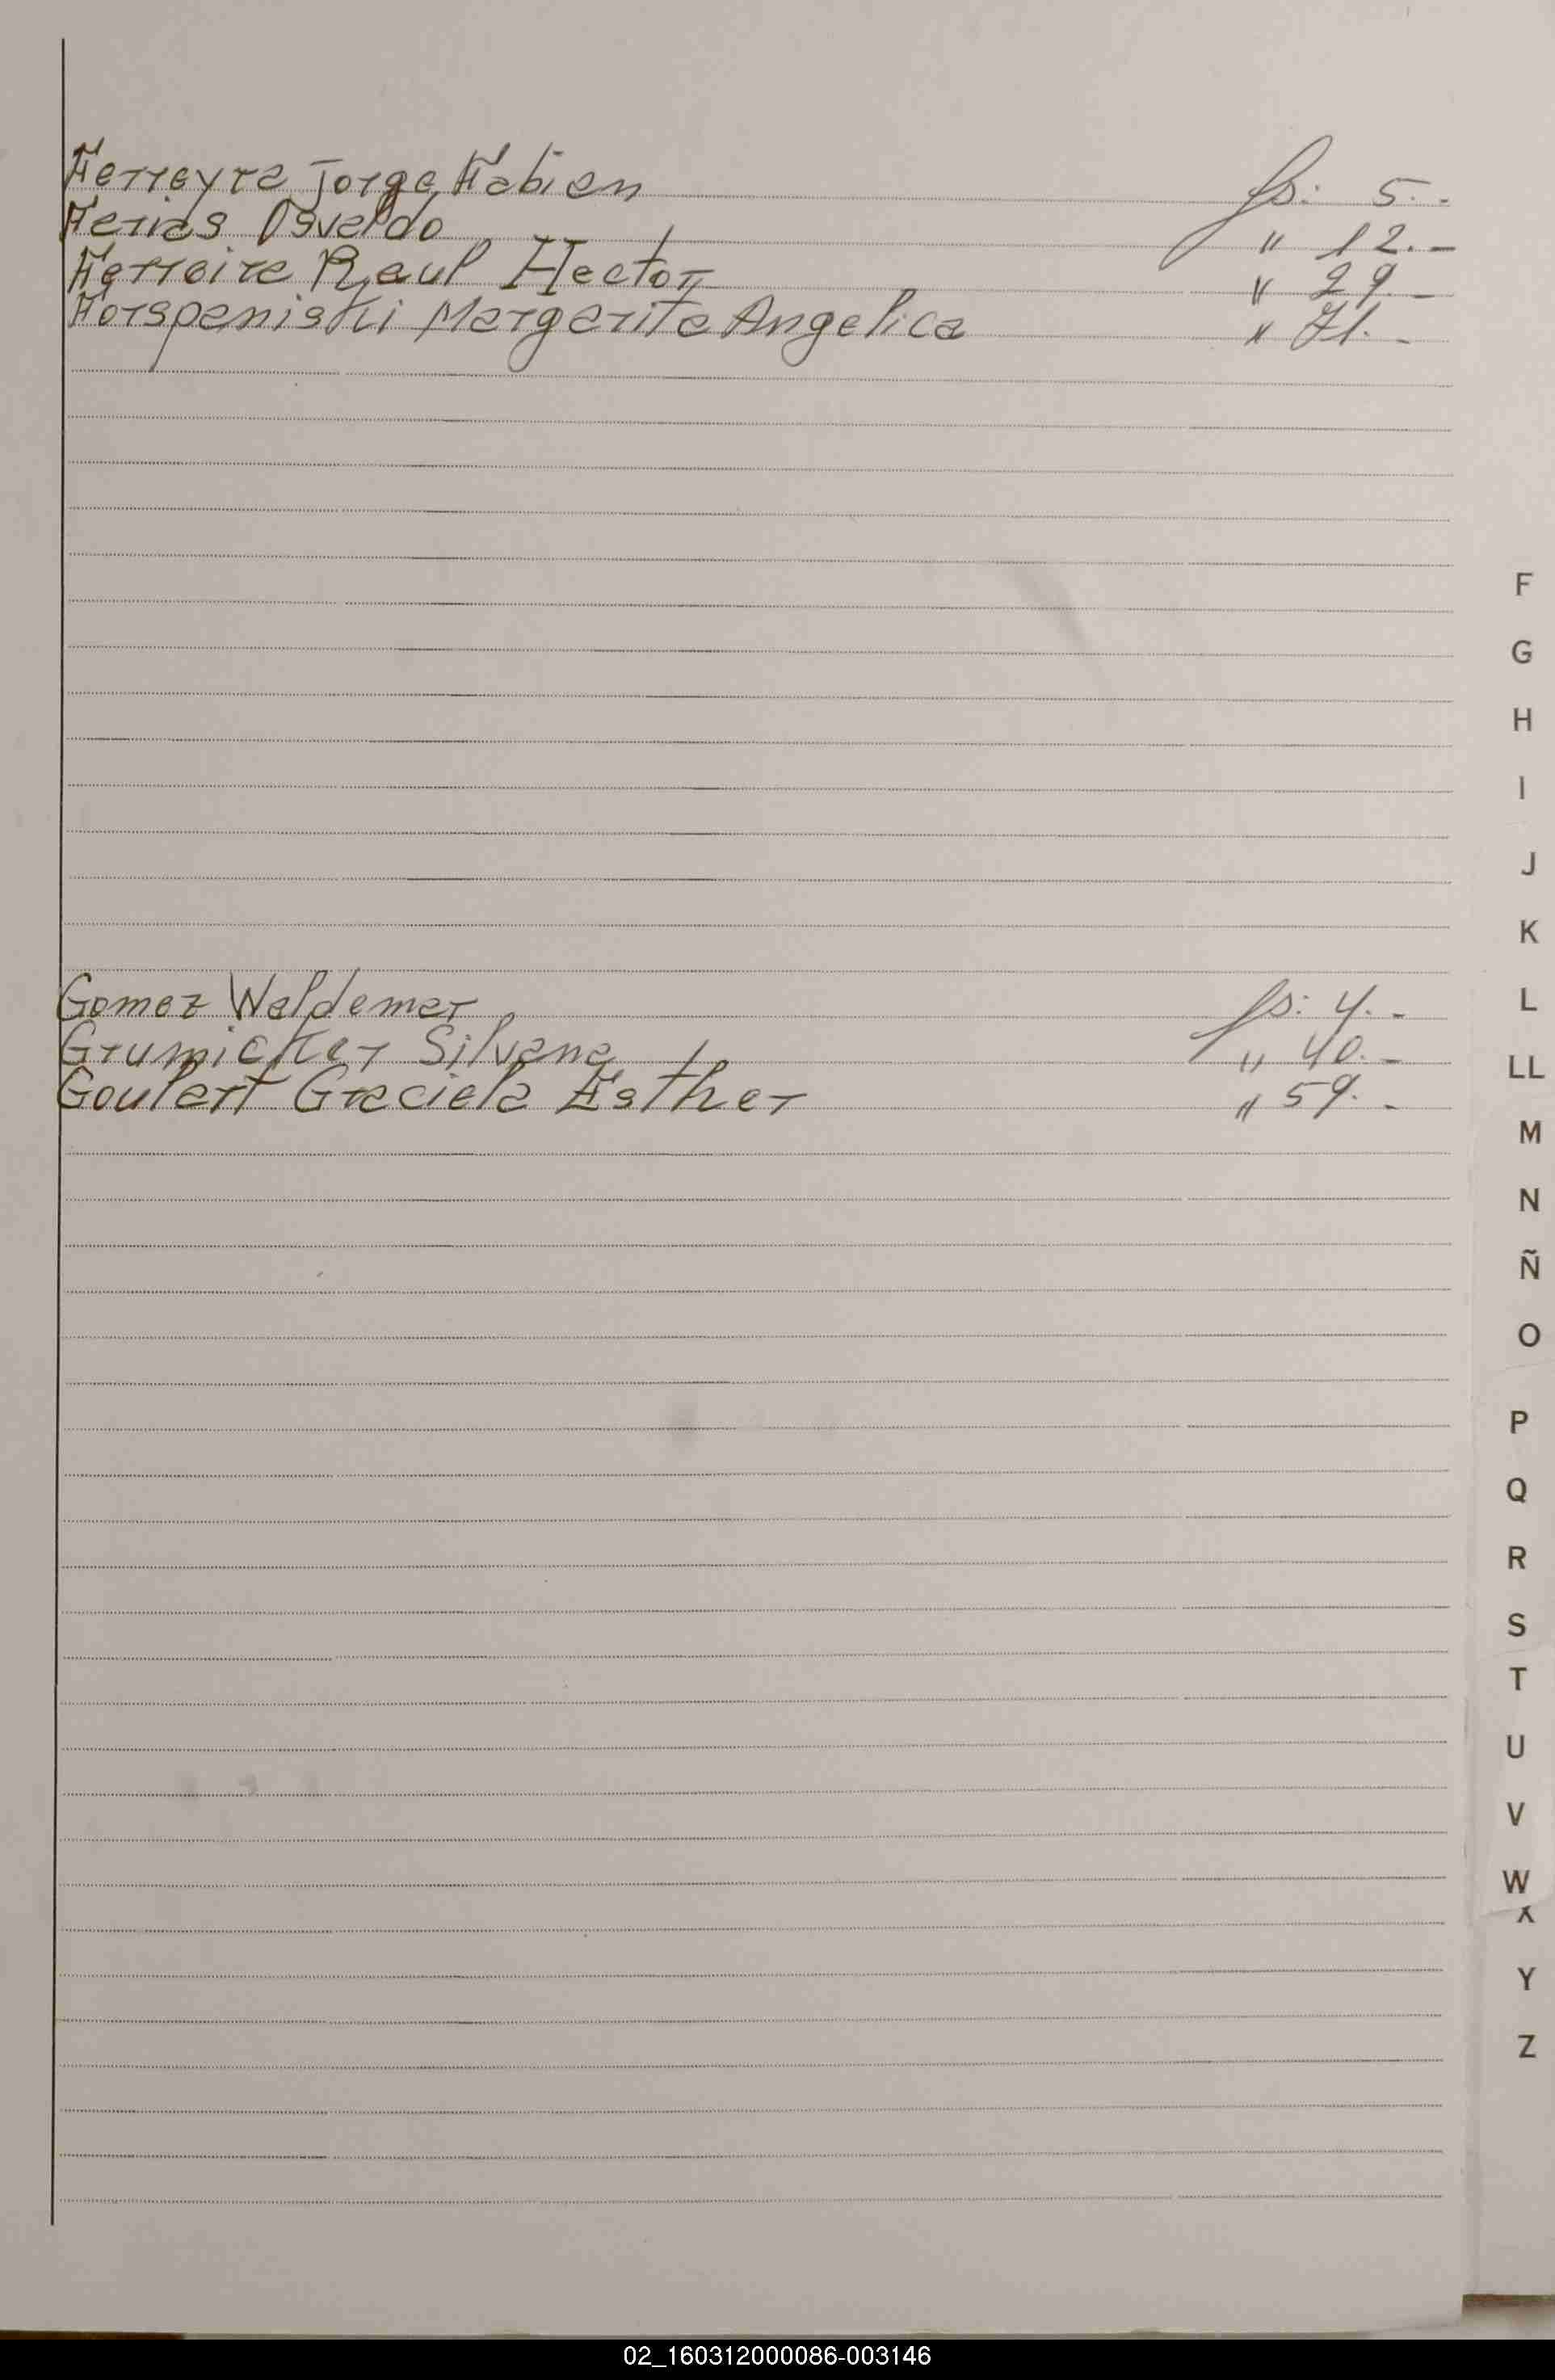 Ferreyra Jorge Fabian fs: 5.-
Farias Osvaldo " 12.-
Ferreira Raul Hector " 29.-
Forspaniski Margarita Angelica " 71.-
Gomez Waldemar fs: 4.-
Grumicker Silvana " 40.-
Goulart Graciela Esther " 59.-
F
G
H
I
J
K
L
LL
M
N
Ñ
O
P
Q
R
S
T
U
V
W
X
Y
Z
02_160312000086-003146